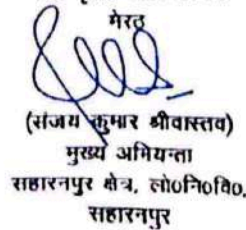 मेरठ
(संजय कुमार श्रीवास्तव)
मुख्य अभियन्ता
सहारनपुर क्षेत्र, लो०नि०वि०,
सहारनपुर